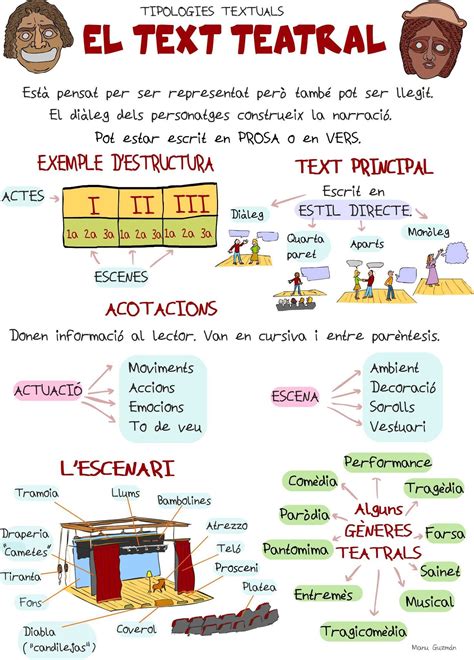 TIPOLOGIES TEXTUALS
EL TEXT TEATRAL
Està pensat per ser representat però també pot ser llegit.
El diàleg dels personatges construeix la narració.
Pot estar escrit en PROSA o en VERS.
EXEMPLE D'ESTRUCTURA
ACTES
I II III
1a 2a 3a 1a 2a 3a 1a 2a 3a
ESCENES
TEXT PRINCIPAL
Escrit en
ESTIL DIRECTE.
Diàleg
Quarta
paret
Aparts
Monòleg
ACOTACIONS
Donen informació al lector. Van en cursiva i entre parèntesis.
ACTUACIÓ
Moviments
Accions
Emocions
To de veu
ESCENA
Ambient
Decoració
Sorolls
Vestuari
L'ESCENARI
Tramoia
Llums
Bambolines
Atrezzo
Teló
Prosceni
Platea
Coverol
Diabla
("candilejas")
Fons
Tiranta
Draperia
"Cametes"
Alguns
GÈNERES
TEATRALS
Performance
Comèdia
Tragèdia
Paròdia
Farsa
Pantomima
Sainet
Entremès
Musical
Tragicomèdia
Manu Guzmán